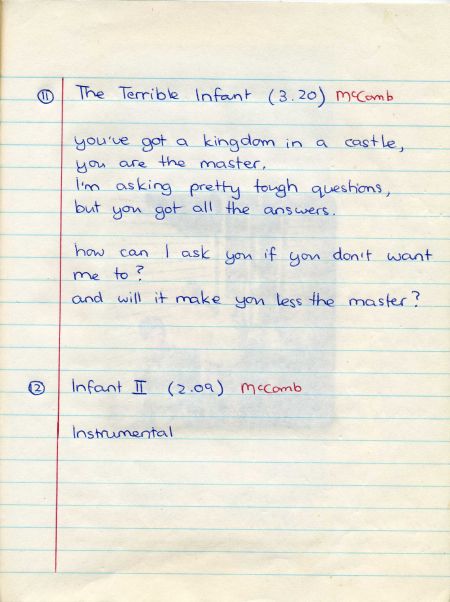 ⑪ The Terrible Infant (3.20) McComb
you've got a kingdom in a castle,
you are the master.
I'm asking pretty tough questions,
but you got all the answers.
how can I ask you if you don't want
me to?
and will it make you less the master?
⑫ Infant II (2.09) McComb
Instrumental